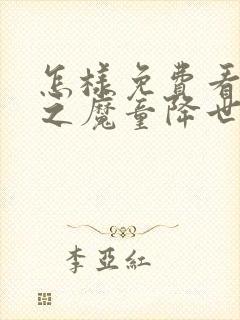 怎樣免費看
之魔童降世
李亞紅